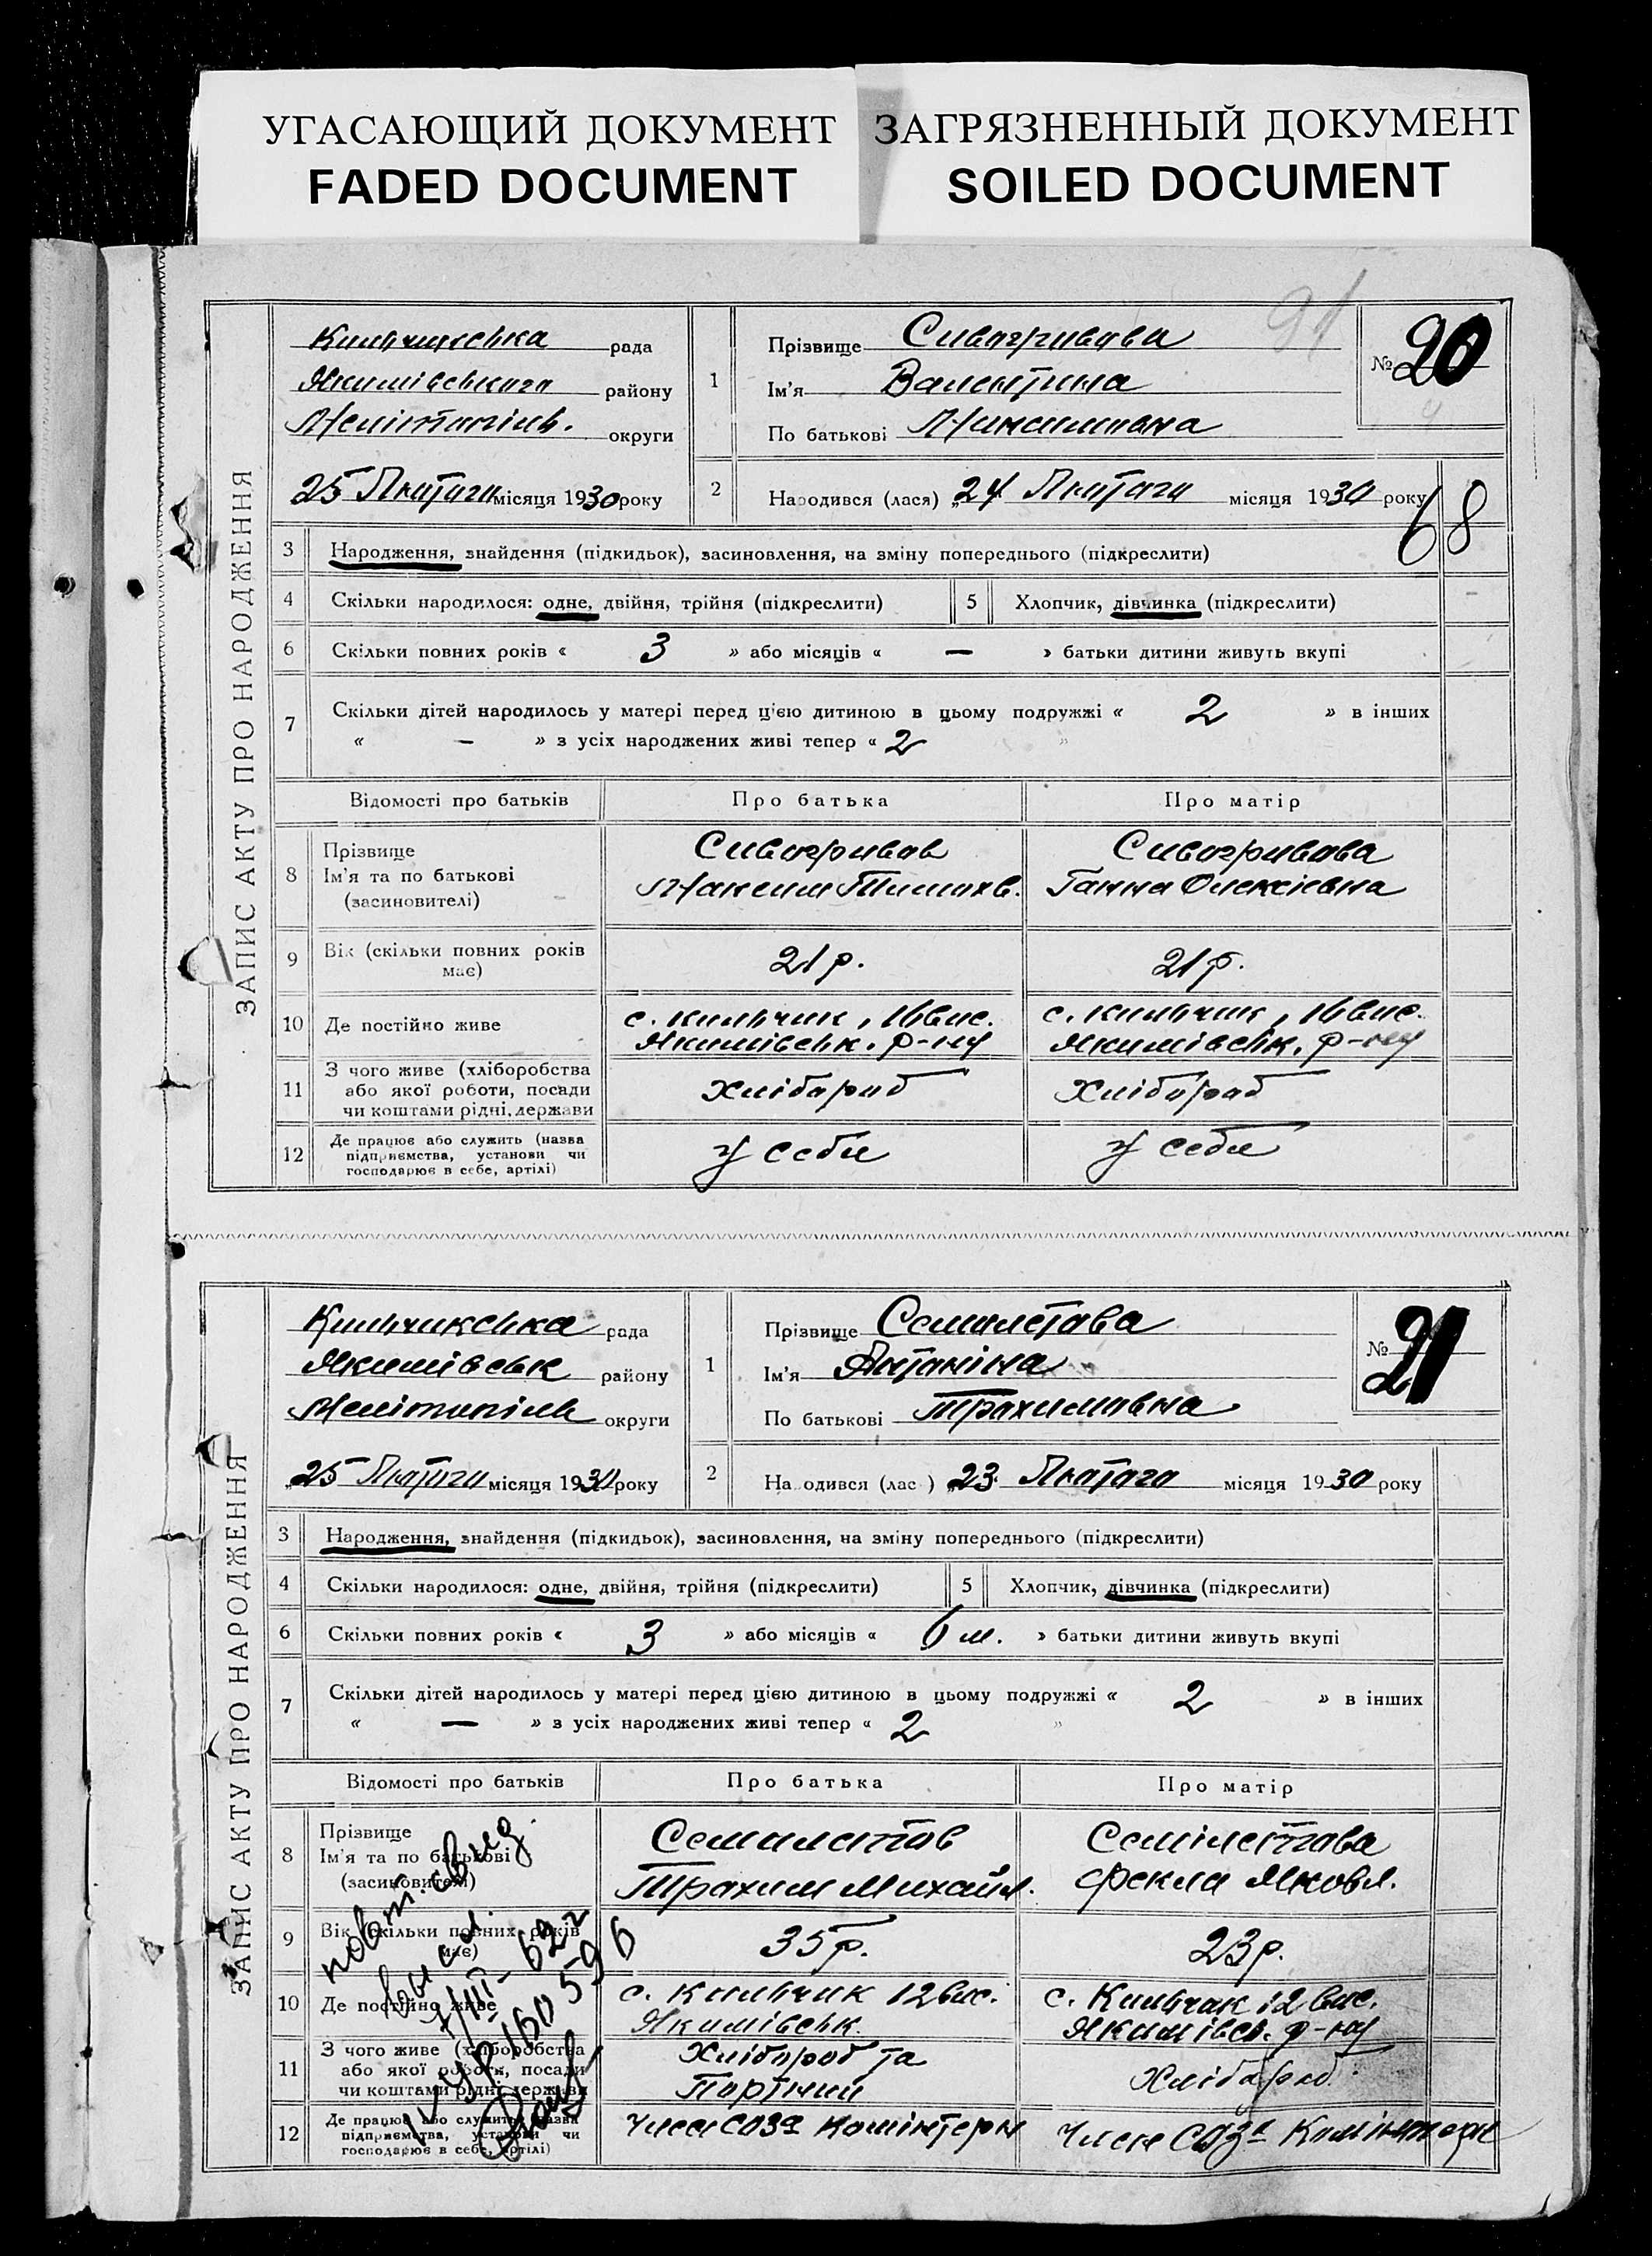 УГАСАЮЩИЙ ДОКУМЕНТ
FADED DOCUMENT
ЗАГРЯЗНЕННЫЙ ДОКУМЕНТ
SOILED DOCUMENT
91
ЗАПИС АКТУ ПРО НАРОДЖЕННЯ
рада
Якимівського району
Мелітопіль. округи
25 Лютого місяця 1930 року
1
Прізвище Сивогривова
Ім'я Валентина
По батькові Максимовна
№ 20
2 Народився (лася) 24 Лютого місяця 1930 року
68
3 Народження, знайдення (підкидьок), засиновлення, на зміну попереднього (підкреслити)
4 Скільки народилося: одне, двійня, трійня (підкреслити) 5 Хлопчик, дівчинка (підкреслити)
6 Скільки повних років « 3 » або місяців « — » батьки дитини живуть вкупі
7 Скільки дітей народилось у матері перед цією дитиною в цьому подружжі « 2 » в інших
« — » з усіх народжених живі тепер « 2 »
Відомості про батьків Про батька Про матір
8 Прізвище
Ім'я та по батькові
(засиновителі)
Сивогривов
Максим Тимохв.
Сивогривова
Ганна Олексіевна
9 Вік (скільки повних років
має)
21 р. 21 р.
10 Де постійно живе
с. Кильчик,
Якимівськ. р-ну
с. Кильчик,
Якимівськ. р-ну
11 З чого живе (хліборобства
або якої роботи, посади
чи коштами рідні, держави
Хлібороб Хлібороб
12 Де працює або служить (назва
підприємства, установи чи
господарює в себе, артілі)
у себе у себе
ЗАПИС АКТУ ПРО НАРОДЖЕННЯ
рада
Якимівськ району
Мелітопіль округи
25 Лютого місяця 1930 року
1
Прізвище Семилетова
Ім'я Антоніна
По батькові Трохимовна
№ 21
2 На одився (лас ) 23 Лютого місяця 1930 року
3 Народження, знайдення (підкидьок), засиновлення, на зміну попереднього (підкреслити)
4 Скільки народилося: одне, двійня, трійня (підкреслити) 5 Хлопчик, дівчинка (підкреслити)
6 Скільки повних років « 3 » або місяців « 6 м. » батьки дитини живуть вкупі
7 Скільки дітей народилось у матері перед цією дитиною в цьому подружжі « 2 » в інших
« — » з усіх народжених живі тепер « 2 »
Відомості про батьків Про батька Про матір
8 Прізвище
Ім'я та по батькові
(засиновителі)
Семилетов
Трохим Михайл.
Семілетова
Фекла Яковл.
9 Вік (скільки повних років
має)
35 р. 23 р.
10 Де постійно живе
с. Кильчик 12 вис.
Якимівськ.
с. Кильчик 12 вис.
р-ну
11 З чого живе (хліборобства
або якої роботи, посади
чи коштами рідні, держави
Хлібороб та
Портний
Хлібороб
12 Де працює або служить (назва
підприємства, установи чи
господарює в себе, артілі)
Член СОЗа Комінтерн
Член СОЗа Комінтерн
повт. свид.